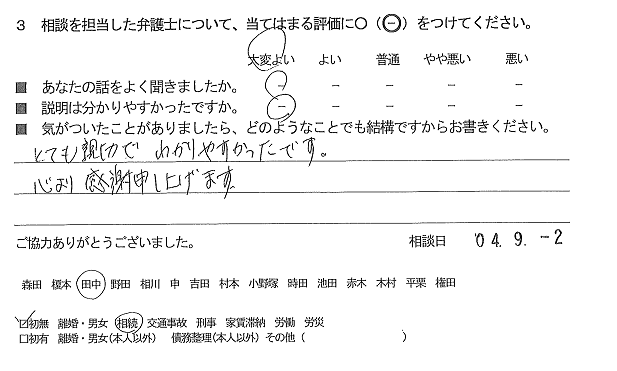 3 相談を担当した弁護士について、当てはまる評価に○（㊀）をつけてください。
大変よい よい 普通 やや悪い 悪い
■ あなたの話をよく聞きましたか。 － － － － －
■ 説明は分かりやすかったですか。 － － － － －
■ 気がついたことがありましたら、どのようなことでも結構ですからお書きください。
とても親切で わかりやすかったです。
心より感謝申し上げます
ご協力ありがとうございました。 相談日 '04.9.-2
森田 榎本 田中 野田 相川 申 吉田 村本 小野塚 時田 池田 赤木 木村 平栗 権田
☑初無 離婚・男女 相続 交通事故 刑事 家賃滞納 労働 労災
□初有 離婚・男女(本人以外) 債務整理(本人以外) その他（ ）